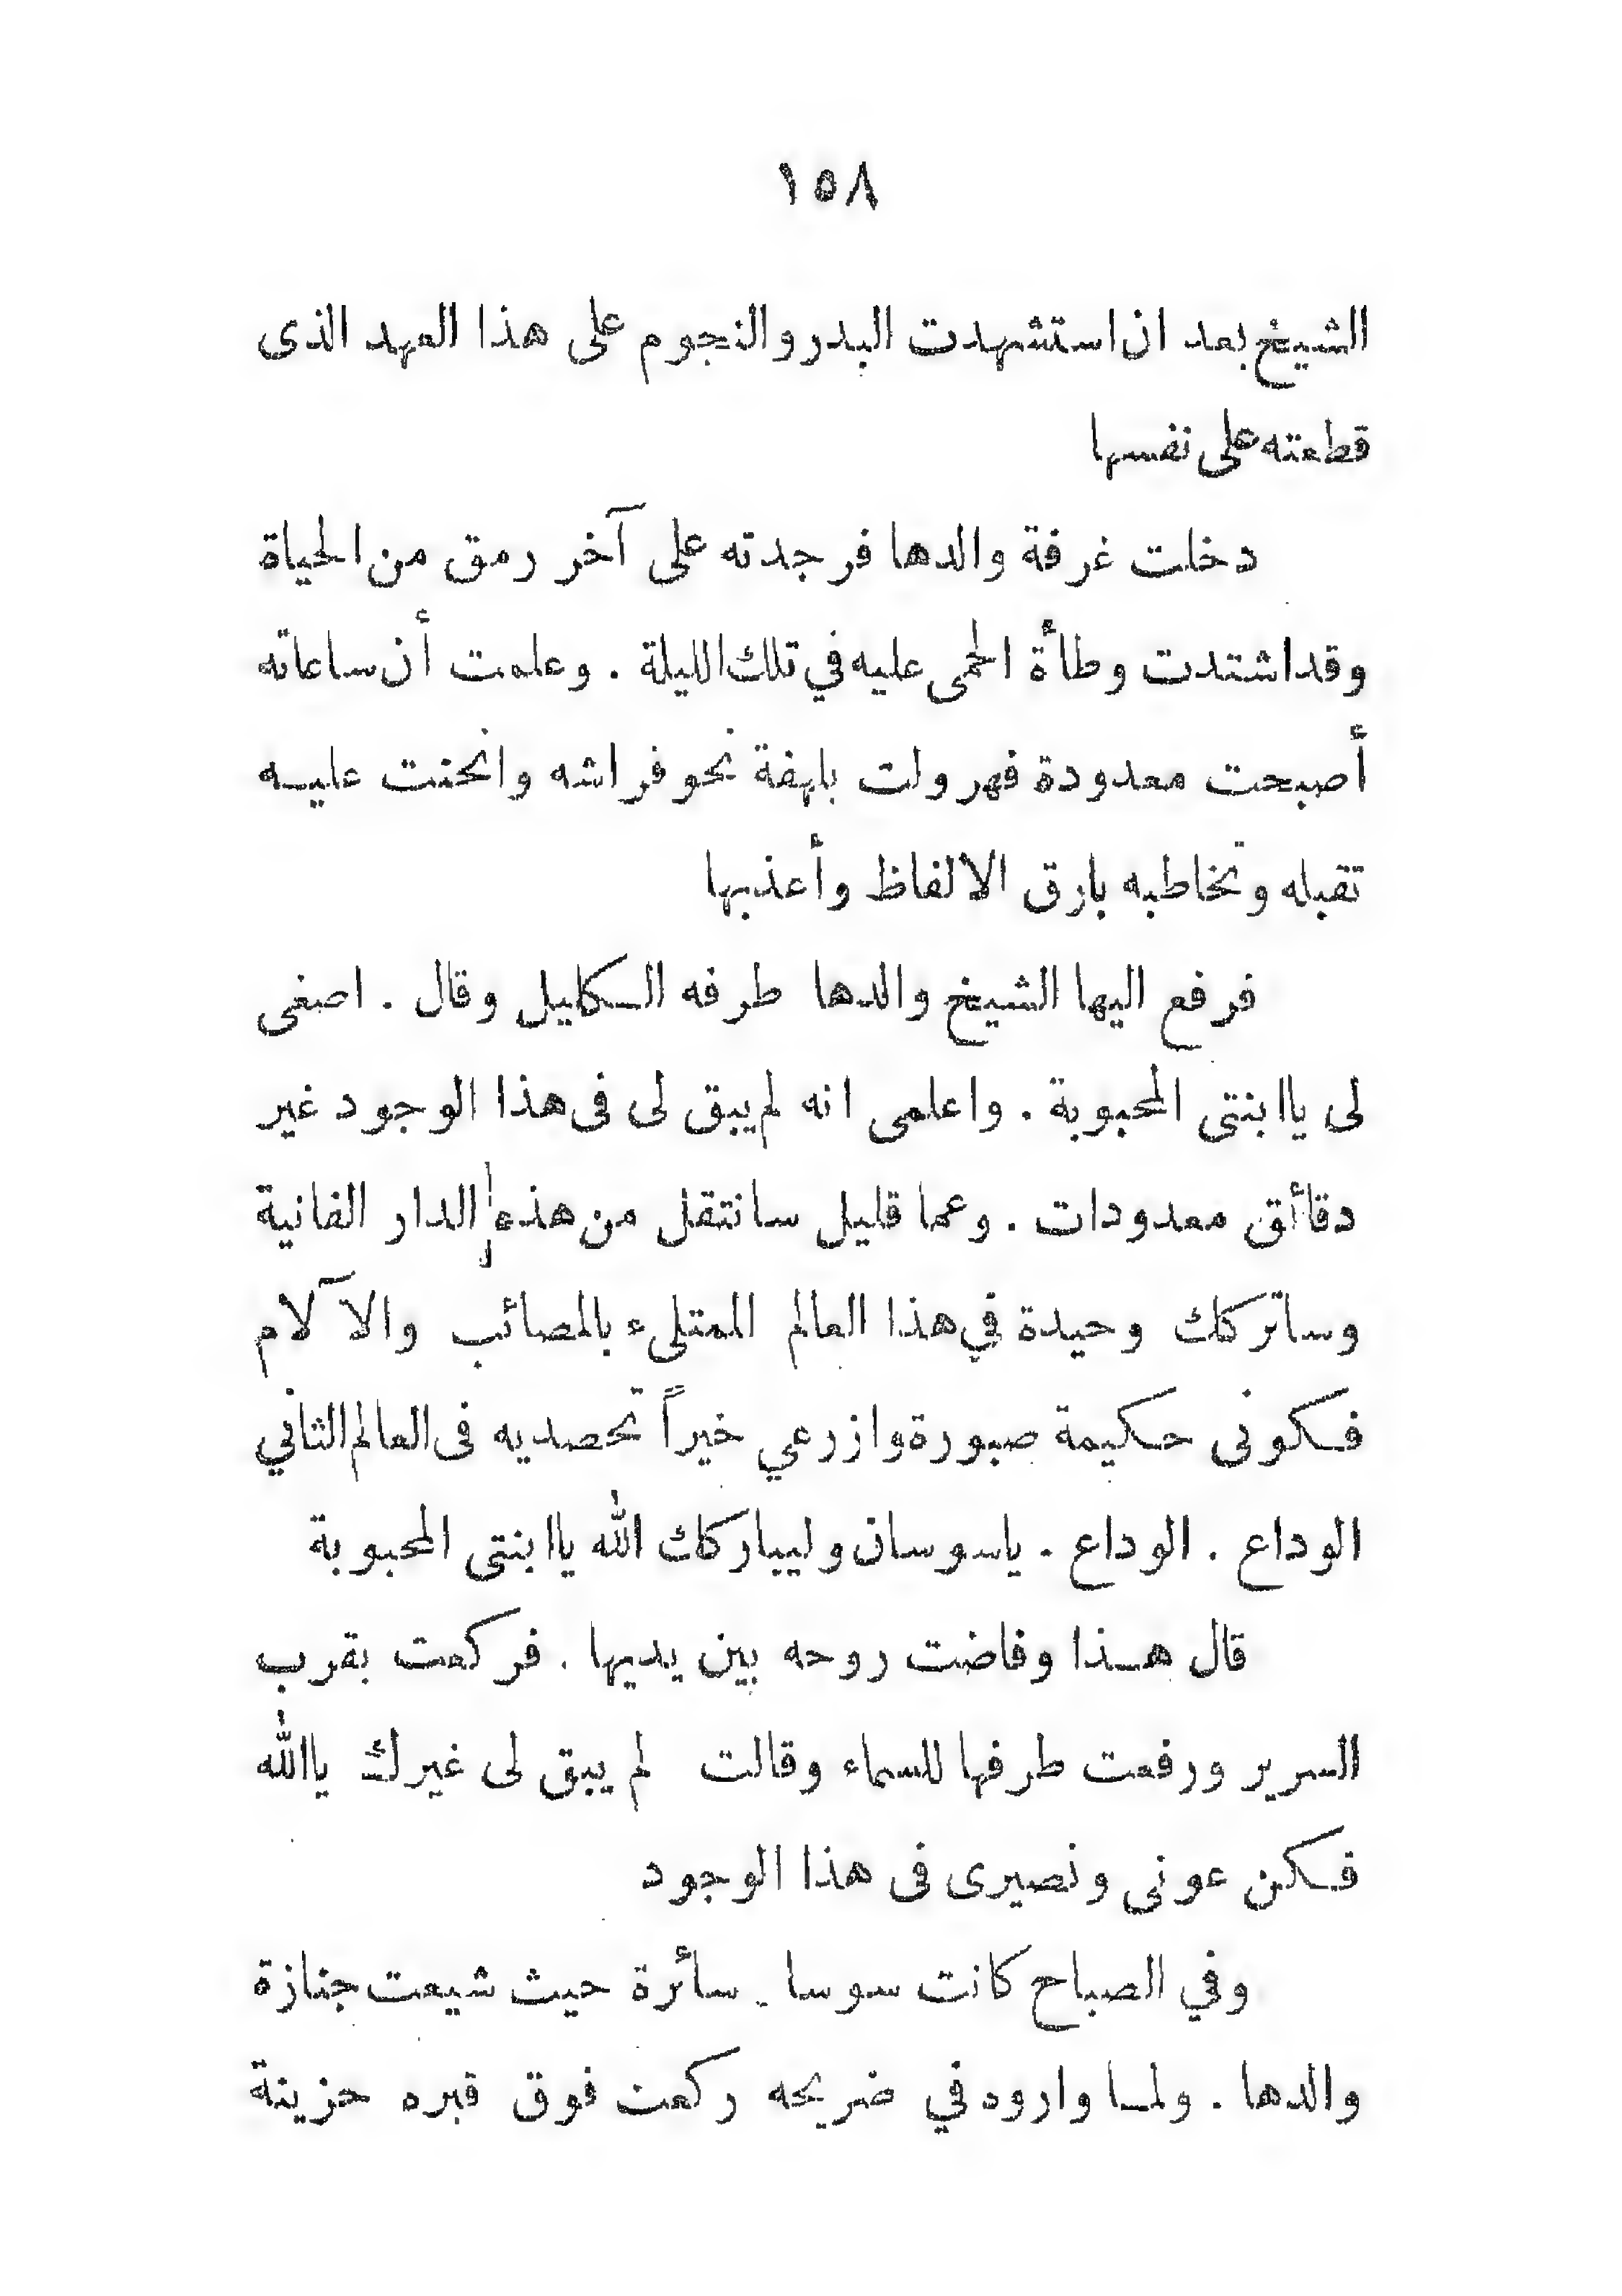 ١٥٨
الشيخ بعد ان استشهدت البدر والنجوم على هذا العهد الذى
قطعته على نفسها
دخلت غرفة والدها فوجدته على آخر رمق من الحياة
وقد اشتدت وطأة الحمى عليه في تلك الليلة . وعلمت أن ساعاته
أصبحت معدودة فهرولت بلهفة نحو فراشه وانحنت عليه
تقبله وتخاطبه بارق الالفاظ وأعذبها
فرفع اليها الشيخ والدها طرفه الكليل وقال . اصغى
لى يا ابنتى المحبوبة . واعلمى انه لم يبق لى فى هذا الوجود غير
دقائق معدودات . وعما قليل سانتقل من هذه الدار الفانية
وساتركك وحيدة في هذا العالم الممتلىء بالمصائب والآلام
فكونى حكيمة صبورة وازرعي خيراً تحصديه فى العالم الثاني
الوداع . الوداع . ياسوسان وليباركك الله يا ابنتى المحبوبة
قال هذا وفاضت روحه بين يديها . فركعت بقرب
السرير ورفعت طرفها للسماء وقالت لم يبق لى غيرك يا الله
فكن عونى ونصيرى فى هذا الوجود
وفي الصباح كانت سوسا. سائرة حيث شيعت جنازة
والدها . ولما واروه في ضريحه ركعت فوق قبره حزينة